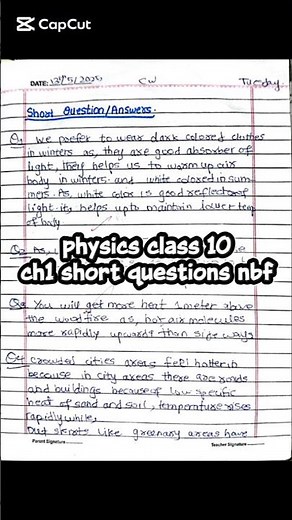 CapCut
DATE: 13/5/2025 CW Tuesday
Short Question/Answers.
Q1 We prefer to wear dark colored clothes
in winters as, they are good absorber of
light, they helps us to warm up air
body in winters. and white colored in sum-
mers. As white color is good reflector of
light. its helps up to maintain lower tem
of body.
physics class 10
ch1 short questions nbf
Q3 You will get more heat 1 meter above
the wood fire as, hot air molecules
more rapidly upwards than side ways
Q4 crowded cities areas feel hotter in
because in city areas there are roads
and buildings because of low specific
heat of sand and soil, temperature rises
rapidly while,
but skirts like greenary areas have
Parent Signature Teacher Signature